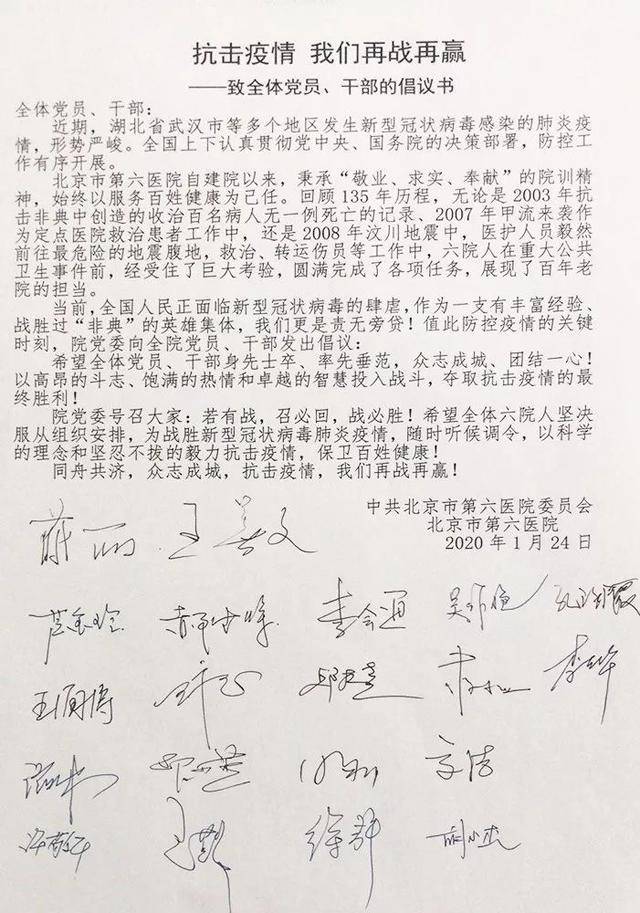 抗击疫情 我们再战再赢
——致全体党员、干部的倡议书
全体党员、干部:
近期,湖北省武汉市等多个地区发生新型冠状病毒感染的肺炎疫
情,形势严峻。全国上下认真贯彻党中央、国务院的决策部署,防控工
作有序开展。
北京市第六医院自建院以来,秉承“敬业、求实、奉献”的院训精
神,始终以服务百姓健康为己任。回顾135年历程,无论是2003年抗
击非典中创造的收治百名病人无一例死亡的记录、2007年甲流来袭作
为定点医院救治患者工作中,还是2008年汶川地震中,医护人员毅然
前往最危险的地震腹地,救治、转运伤员等工作中,六院人在重大公共
卫生事件前,经受住了巨大考验,圆满完成了各项任务,展现了百年老
院的担当。
当前,全国人民正面临新型冠状病毒的肆虐,作为一支有丰富经验、
战胜过“非典”的英雄集体,我们更是责无旁贷!值此防控疫情的关键
时刻,院党委向全院党员、干部发出倡议:
希望全体党员、干部身先士卒、率先垂范,众志成城、团结一心!
以高昂的斗志、饱满的热情和卓越的智慧投入战斗,夺取抗击疫情的最
终胜利!
院党委号召大家:若有战,召必回,战必胜!希望全体六院人坚决
服从组织安排,为战胜新型冠状病毒肺炎疫情,随时听候调令,以科学
的理念和坚忍不拔的毅力抗击疫情,保卫百姓健康!
同舟共济,众志成城,抗击疫情,我们再战再赢!
中共北京市第六医院委员会
北京市第六医院
2020年1月24日
李会通
徐静